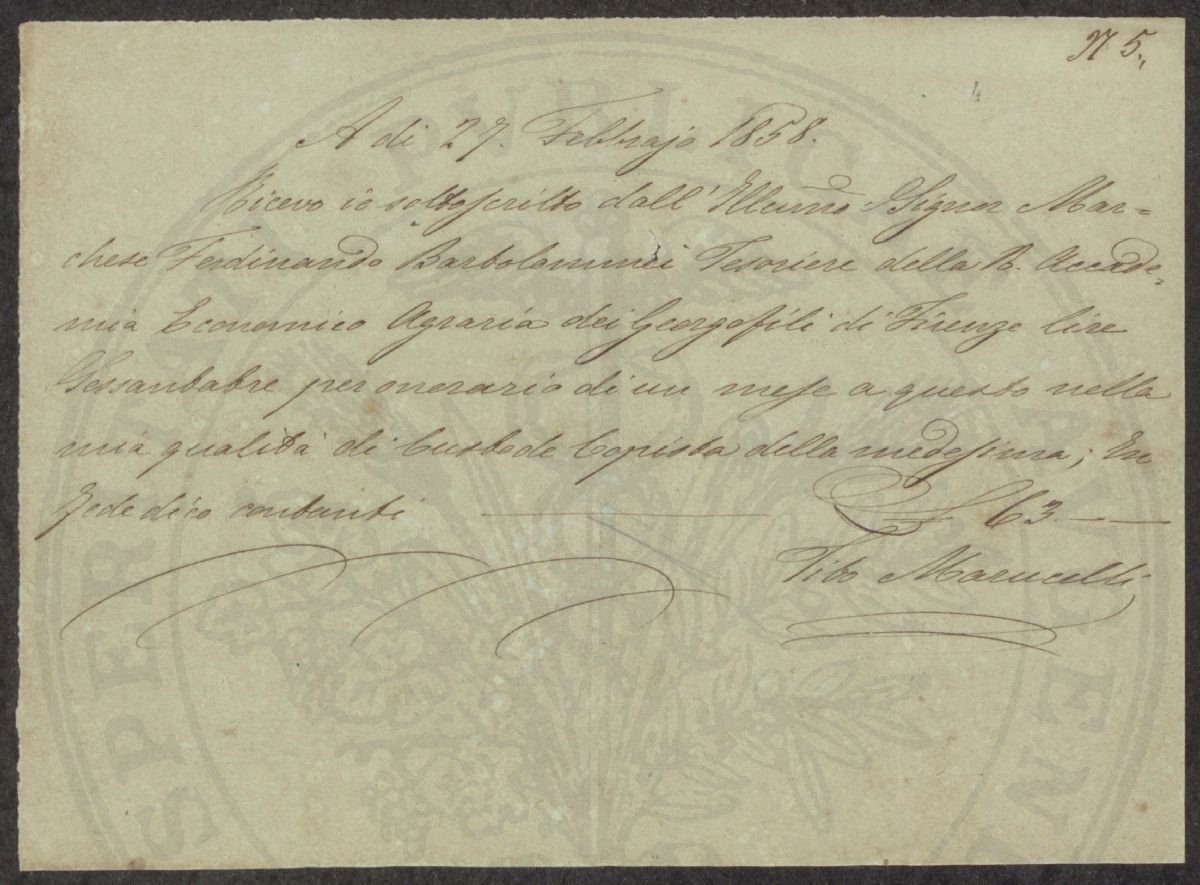 N 5.,
4
A di 27. Febbrajo 1858.
Ricevo io sottoscritto dall' Illumo Signor Mar=
chese Ferdinando Bartolommei Tesoriere della R. Accade=
mia Economico Agraria dei Georgofili di Firenze lire
Sessantatre per onorario di un mese a questo nella
mia qualità di Custode Copista della medesima; En
fede dico contanti £ 63.——
Vibo Marucelli
PROSPERITATI PUBLICAE AUGENDAE